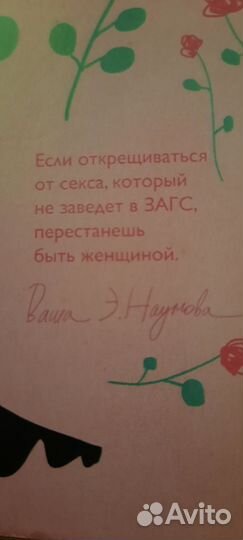 Если открещиваться
от секса, который
не заведет в ЗАГС,
перестанешь
быть женщиной.
Ваша Э. Наумова
Avito